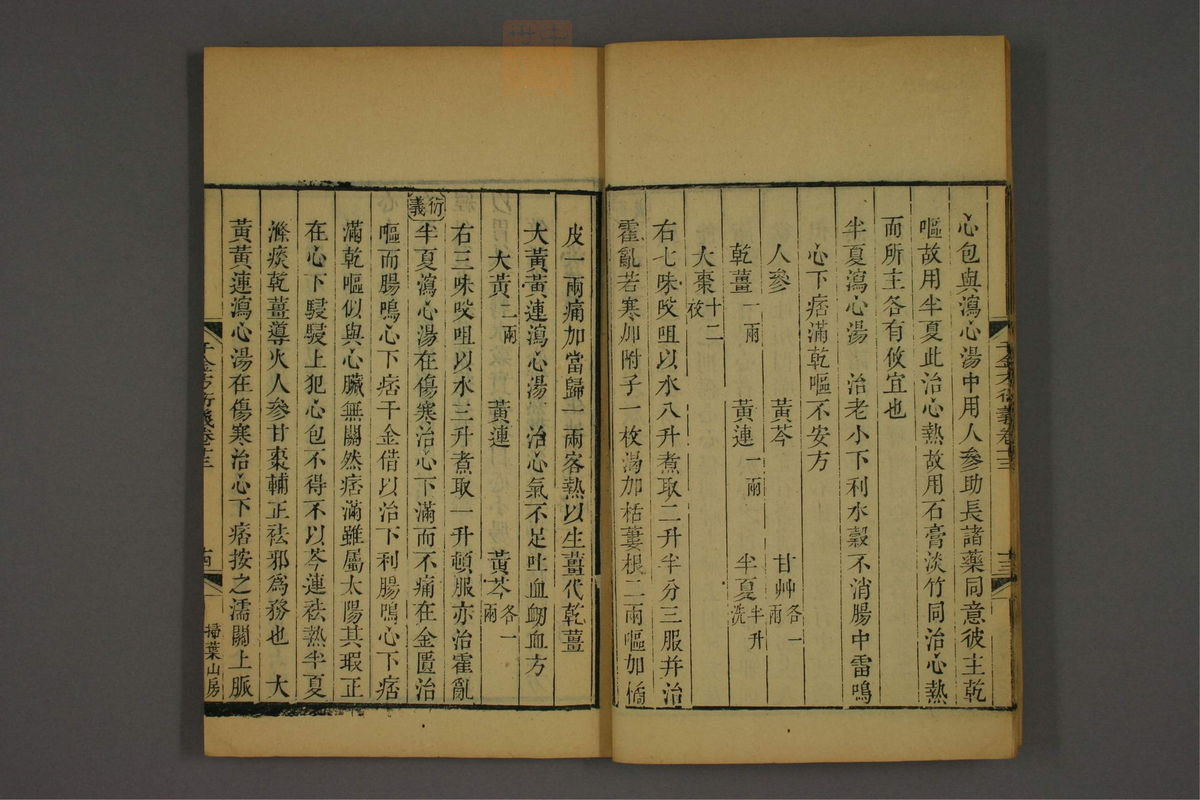 心包與瀉心湯中用人參助長諸藥同意彼主乾
嘔故用半夏此治心熱故用石膏淡竹同治心熱
而所主各有攸宜也
半夏瀉心湯　治老小下利水穀不消腸中雷鳴
心下痞滿乾嘔不安方
人參　黃芩　甘艸各一兩
乾薑一兩　黃連一兩　半夏半升洗
大棗十二枚
右七味㕮咀以水八升煮取二升半分三服并治
霍亂若寒加附子一枚渴加栝蔞根二兩嘔加橘
千金方衍義卷十三
十三
皮一兩痛加當歸一兩客熱以生薑代乾薑
大黃黃連瀉心湯　治心氣不足吐血衄血方
大黃二兩　黃連　黃芩各一兩
右三味㕮咀以水三升煮取一升頓服亦治霍亂
衍義半夏瀉心湯在傷寒治心下滿而不痛在金匱治
嘔而腸鳴心下痞千金借以治下利腸鳴心下痞
滿乾嘔似與心臟無關然痞滿雖屬太陽其瑕正
在心下駸駸上犯心包不得不以芩連祛熱半夏
滌痰乾薑導火人參甘棗輔正祛邪爲務也　大
黃黃連瀉心湯在傷寒治心下痞按之濡關上脈
千金方衍義卷十三
十四
掃葉山房